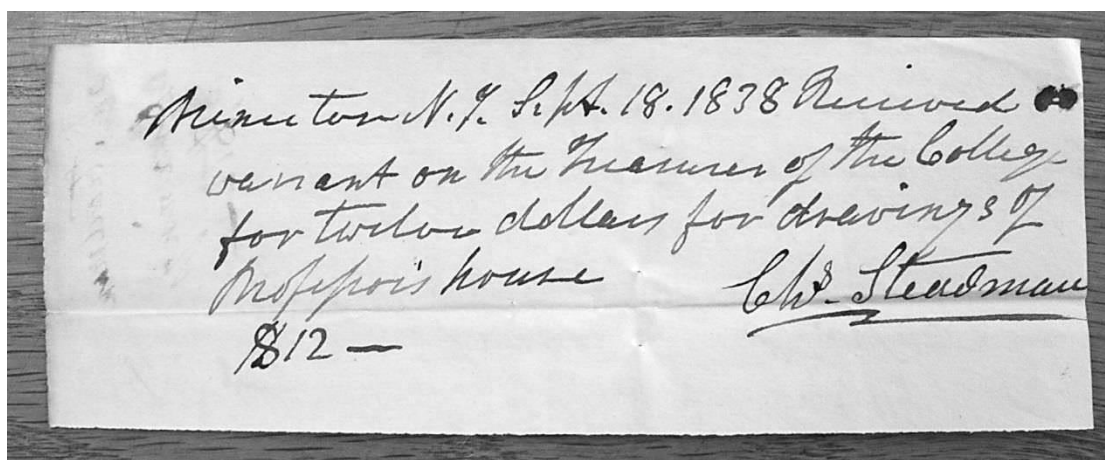 Princeton N.J. Sept. 18. 1838 Received a
warrant on the Treasurer of the College
for twelve dollars for drawings of
Professors house
Chs. Steadman
$12 —